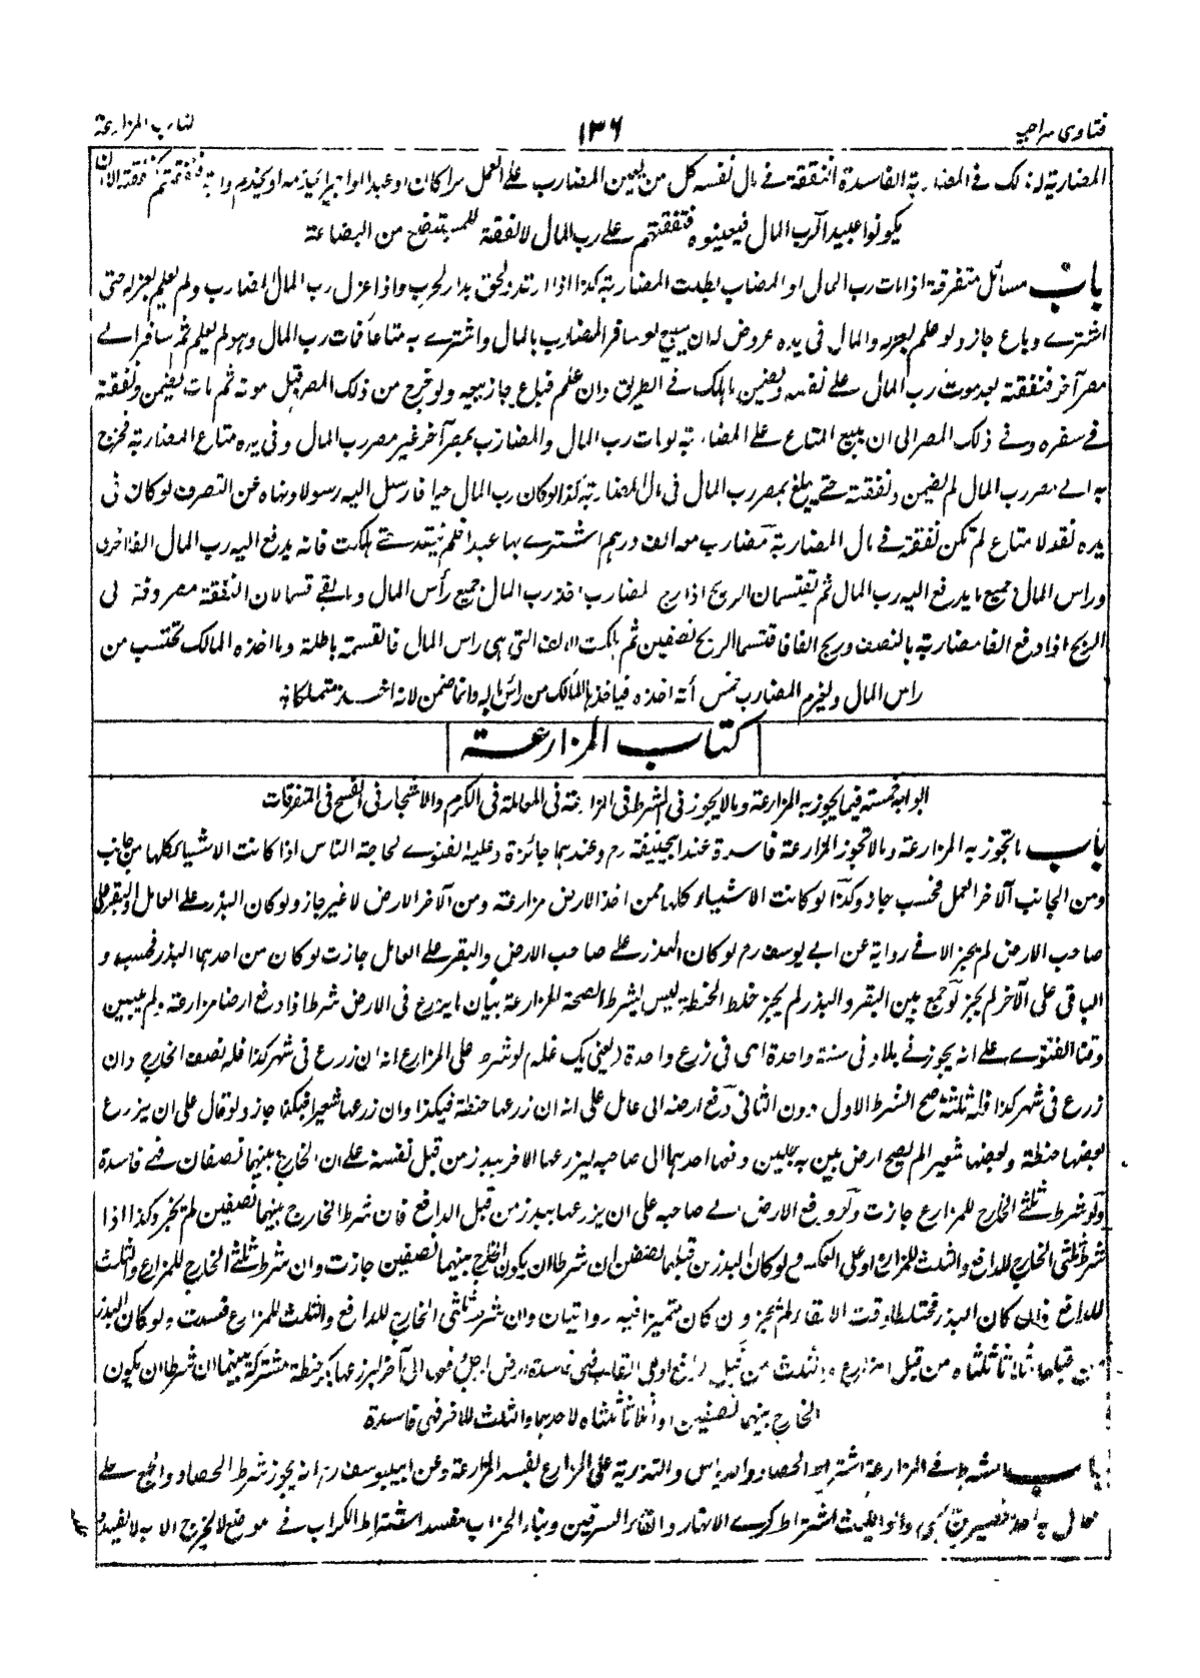 فتاوى سراجيه
۱۳۶
كتاب المزارعة
المضاربة كذلك في المضاربة الفاسدة النفقة في مال نفسه كل من يعين المضارب على العمل
يكونوا عبيدا لرب المال فيعينوه فنفقتهم على رب المال لا نفقة للمستبضع من البضاعة
باب مسائل متفرقة اذا مات رب المال او المضارب بطلت المضاربة كذا اذا ارتد ولحق بدار الحرب واذا عزل رب المال المضارب ولم يعلم بعزله حتى
اشترے وباع جاز ولو علم بعزله والمال في يده عروض له ان يبيع لو سافر المضارب بالمال واشترے به متاعا فمات رب المال وهو لم يعلم ثم سافر الے
مصر آخر فنفقته بعد موت رب المال علے نفسه ويضمن ما هلك في الطريق وان علم فباع جاز بيعه ولو خرج من ذلك المصر قبل موته ثم مات لم يضمن ونفقته
في سفره وفے ذلك المصر الى ان يبيع المتاع علے المضاربة لو مات رب المال والمضارب بمصر آخر غير مصر رب المال وفي يده متاع المضاربة فخرج
به الے مصر رب المال لم يضمن ونفقته حتے يبلغ بمصر رب المال في مال المضاربة كذا لو كان رب المال حيا فارسل اليه رسولا ونهاه عن التصرف لو كان في
يده نقد لا متاع لم تكن نفقته في مال المضاربة مضارب معه الف درهم اشترے بها عبدا فلم ينقد حتے هلكت فانه يدفع اليه رب المال الفا اخرى
وراس المال جميع ما يدفع اليه رب المال ثم يقتسمان الربح اذا ربح المضارب اخذ رب المال جميع رأس المال وما بقے قسما لان النفقة مصروفة الى
الربح اذا دفع الفا مضاربة بالنصف وربح الفا فاقتسما الربح نصفين ثم هلكت الالف التي هى راس المال فالقسمة باطلة وما اخذه المالك يحتسب من
راس المال ويغرم المضارب خمس مأته اخذه فياخذها المالك من رأس ماله وانما ضمن لانه اخذه متملكا به
كتاب المزارعة
ابوابه خمسة فيما يجوز به المزارعة وما لا يجوز في الشرط في المزارعة في المعاملة في الكرم والاشجار في الفسخ في المتفرقات
باب ما تجوز به المزارعة وما لا تجوز المزارعة فاسدة عند ابيحنيفة رم وعندهما جائزة وعليه الفتوے لحاجة الناس اذا كانت الاشياء كلها من جانب
ومن الجانب الآخر العمل فحسب جاز وكذا لو كانت الاشياء كلها ممن اخذ الارض مزارعة ومن الآخر الارض لا غير جاز ولو كان البذر علے العامل والبقر على
صاحب الارض لم يجز الا في رواية عن ابي يوسف رم لو كان البذر علے صاحب الارض والبقر علے العامل جازت لو كان من احدهما البذر فحسب و
الباقي على الآخر لم يجز لو جمع بين البقر والبذر لم يجز خلط الحنطة ليس بشرط لصحة المزارعة بيان ما يزرع في الارض شرط اذا دفع ارضا مزارعة ولم يبين
وقتا الفتوے علے انه يجوز في بلاد في سنة واحدة اى في زرع واحدة (يعنى يك غله) لو شرط على المزارع انه ان زرع في شهر كذا فله نصف الخارج وان
زرع في شهر كذا فله ثلثه صح الشرط الاول دون الثانى دفع ارضه الى عامل على انه ان زرعها حنطة فبكذا وان زرعها شعيرا فبكذا جاز ولو قال على ان يزرع
بعضها حنطة وبعضها شعيرا لم يصح ارض بين رجلين دفعها احدهما الى صاحبه ليزرعها الآخر ببذر من قبل نفسه على ان الخارج بينهما نصفان فهي فاسدة
ولو شرط ثلثے الخارج للمزارع جازت ولو دفع الارض الے صاحبه على ان يزرعها ببذر من قبل الدافع فان شرط الخارج بينهما نصفين لم يجز وكذا اذا
شرط ثلثى الخارج للدافع والثلث للمزارع او على العكس ولو كان البذر من قبلهما نصفين ان شرطا ان يكون الخارج بينهما نصفين جازت وان شرط ثلثے الخارج للمزارع والثلث
للدافع فان كان البذر مختلطا وقت الالقاء لم يجز وان كان متميزا فيه روايتان وان شرط ثلثى الخارج للدافع والثلث للمزارع فسدت ولو كان البذر
من قبلهما اثلاثا ثلثاه من قبل المزارع والثلث من قبل الدافع او على القلب فهى فاسدة ارض رجل دفعها الى آخر ليزرعها بحنطة مشتركة بينهما ان شرطا ان يكون
الخارج بينهما نصفين او أثلاثا ثلثاه لاحدهما والثلث للآخر فهى فاسدة
باب الشرط فے المزارعة اشتراط الحصاد والدياس والتذرية على المزارع يفسد المزارعة وعن ابي يوسف رم انه يجوز شرط الحصاد والجمع علے
اشتراط كرے الانهار والقاء السرقين وبناء الحراب مفسد اشتراط الكراب في موضع لا يخرج الا به لا يفسد